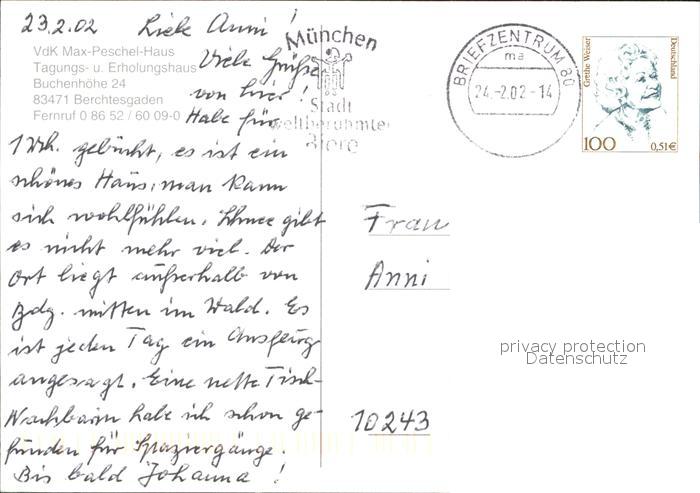 23.2.02 Liebe Anni!
VdK Max-Peschel-Haus
Tagungs- u. Erholungshaus
Buchenhöhe 24
83471 Berchtesgaden
Fernruf 0 86 52 / 60 09-0
Viele Grüße
von hier!
Habe für
1 Wh. gebucht, es ist ein
schönes Haus, man kann
sich wohlfühlen. Schnee gibt
es nicht mehr viel. Der
Ort liegt außerhalb von
Bdg. mitten im Wald. Es
ist jeden Tag ein Ausflug
angesagt. Eine nette Tisch-
Nachbarin habe ich schon ge-
funden für Spaziergänge.
Bis bald Johanna!
München
Stadt
weltberühmter
Biere
BRIEFZENTRUM 80
ma
24.-2.02-14
Grethe Weiser
Deutschland
100
0,51€
Frau
Anni
privacy protection
Datenschutz
10243